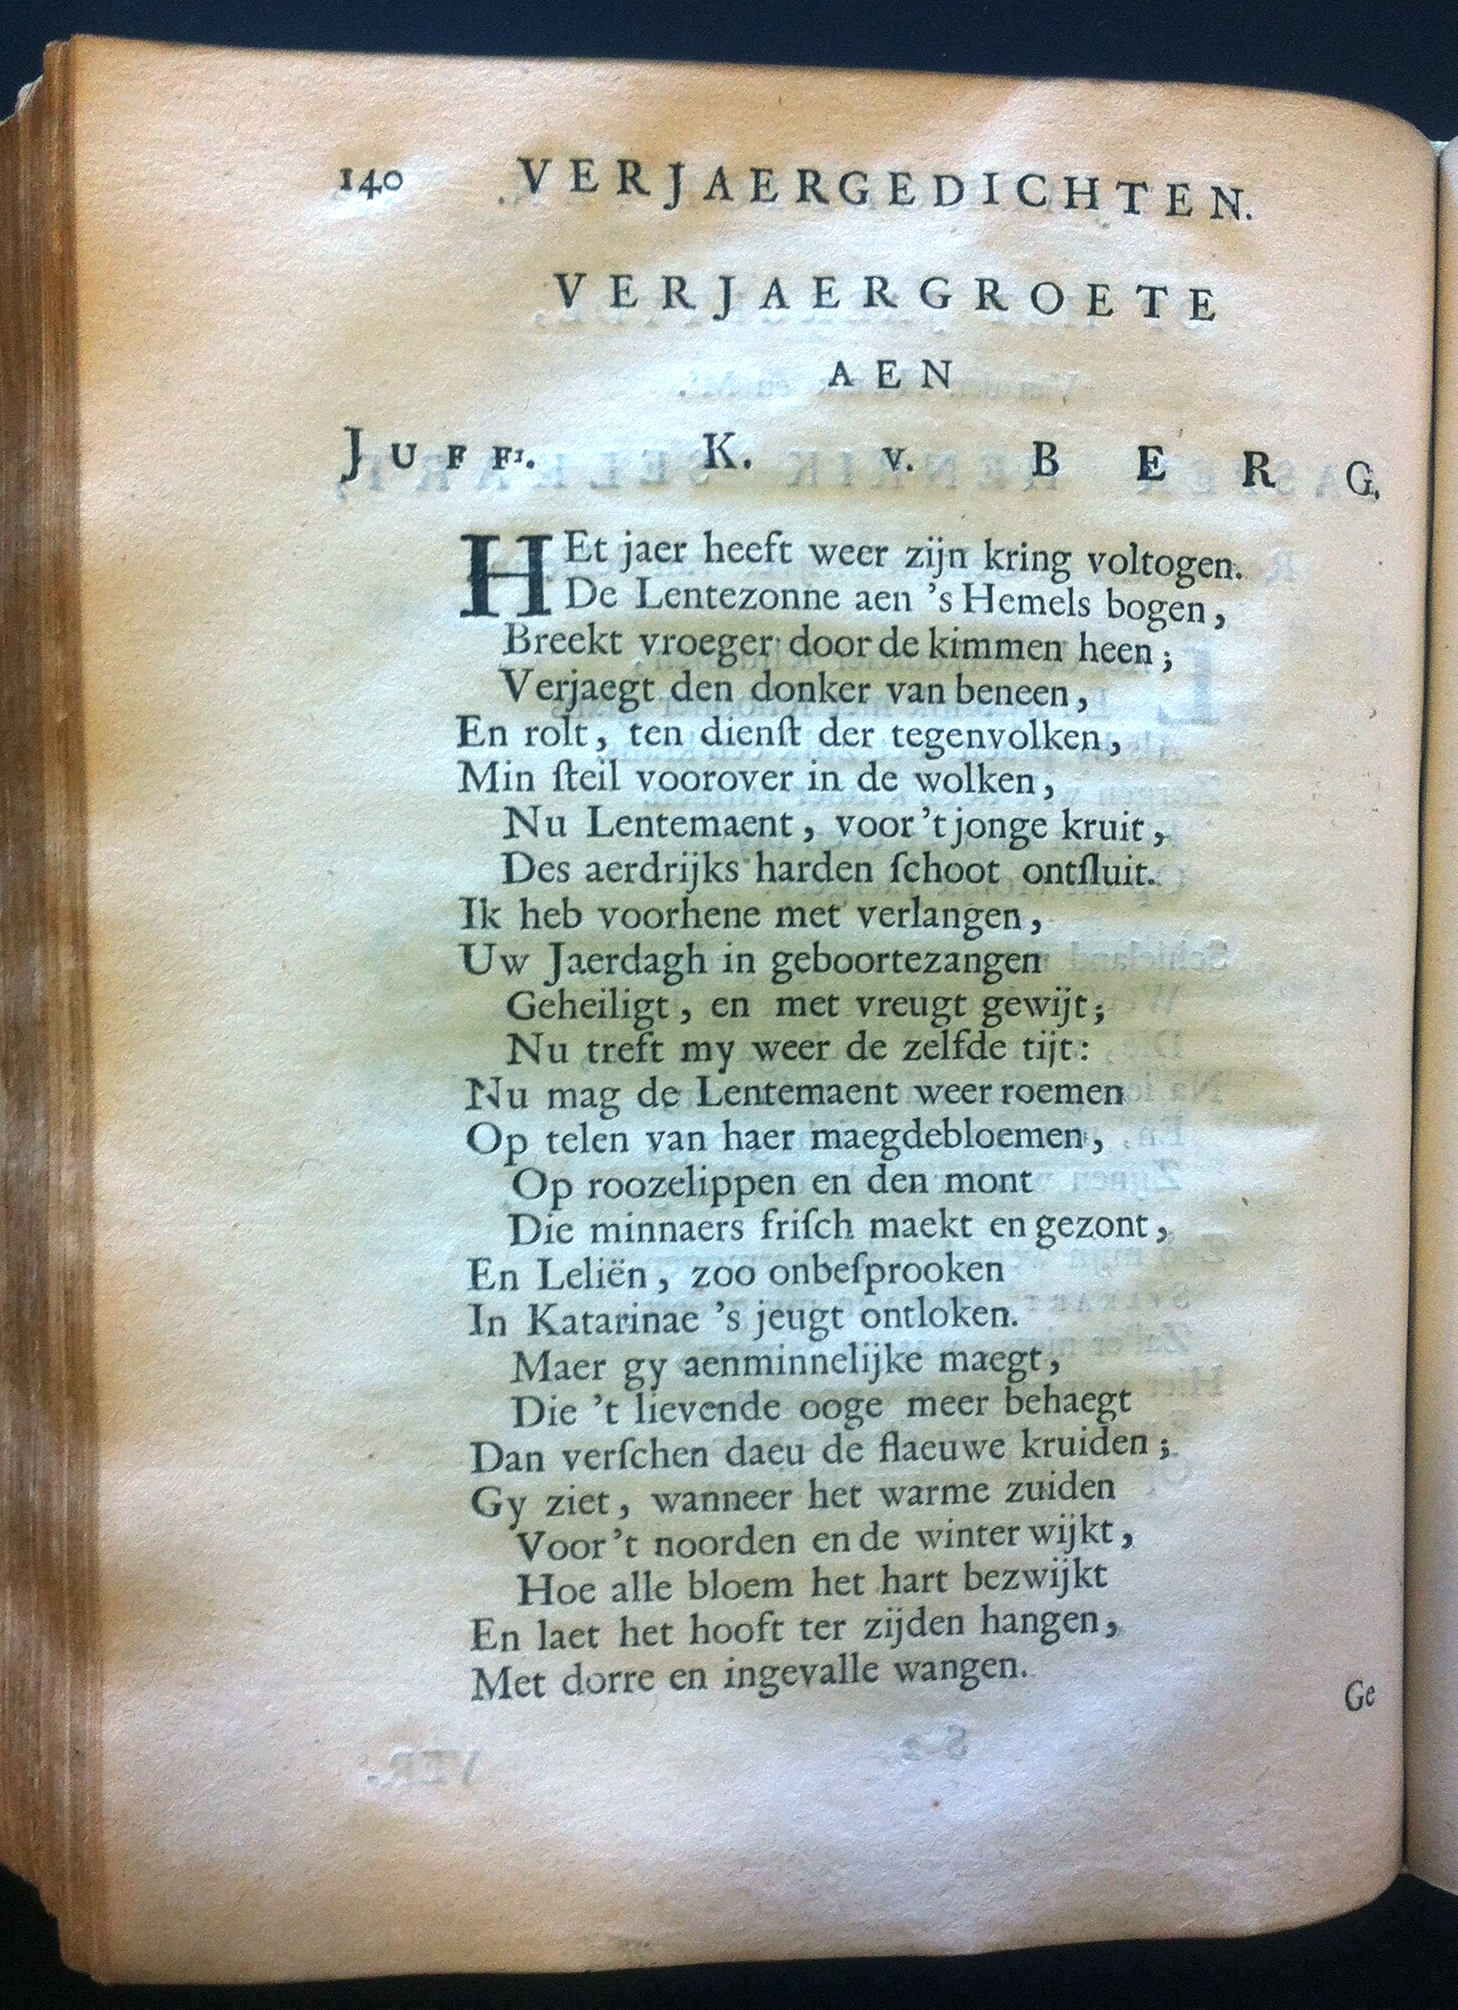 140 VERJAERGEDICHTEN.
VERJAERGROETE
AEN
JUFFr. K. v. BERG.
HEt jaer heeft weer zijn kring voltogen.
De Lentezonne aen 's Hemels bogen,
Breekt vroeger door de kimmen heen;
Verjaegt den donker van beneen,
En rolt, ten dienſt der tegenvolken,
Min ſteil voorover in de wolken,
Nu Lentemaent, voor 't jonge kruit,
Des aerdrijks harden ſchoot ontſluit.
Ik heb voorhene met verlangen,
Uw Jaerdagh in geboortezangen
Geheiligt, en met vreugt gewijt;
Nu treft my weer de zelfde tijt:
Nu mag de Lentemaent weer roemen
Op telen van haer maegdebloemen,
Op roozelippen en den mont
Die minnaers friſch maekt en gezont,
En Leliën, zoo onbeſprooken
In Katarinae 's jeugt ontloken.
Maer gy aenminnelijke maegt,
Die 't lievende ooge meer behaegt
Dan verſchen daeu de flaeuwe kruiden;
Gy ziet, wanneer het warme zuiden
Voor 't noorden en de winter wijkt,
Hoe alle bloem het hart bezwijkt
En laet het hooft ter zijden hangen,
Met dorre en ingevalle wangen.
Ge